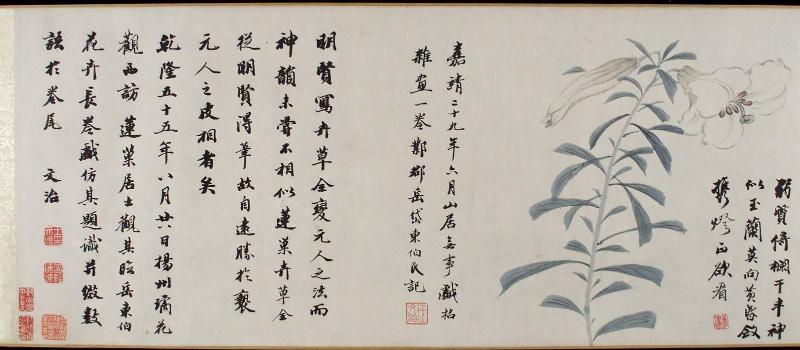 弱質倚欄干丰神
似玉蘭莫向黃昏斂
攜燈正欲看
嘉靖二十九年六月山居無事戲拈
雜畫一卷鄴郡岳岱東伯氏記
明賢寫卉草全變元人之法而
神韻未嘗不相似蓮巢卉草全
從明賢得筆故自遠勝於襲
元人之皮相者矣
乾隆五十五年八月廿六日揚州璚花
觀西訪蓮巢居士觀其臨岳東伯
花卉長卷戲仿其題識并綴數
語於卷尾 文治